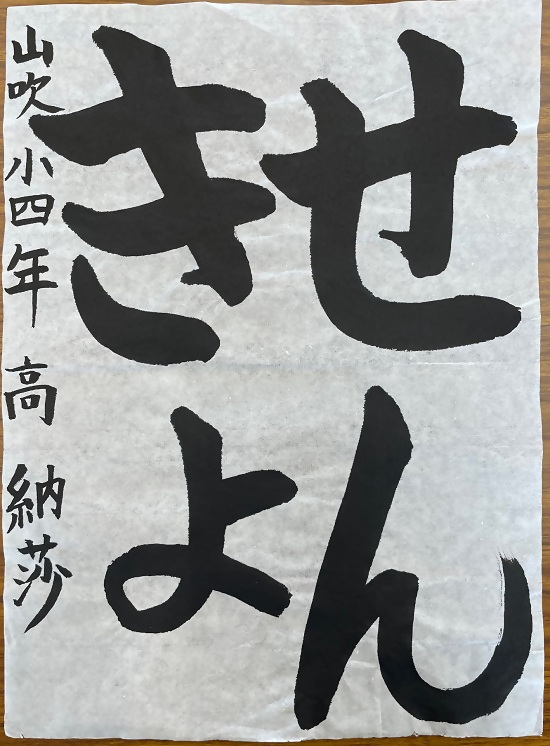 せん
きよ
山吹小四年 高 納莎